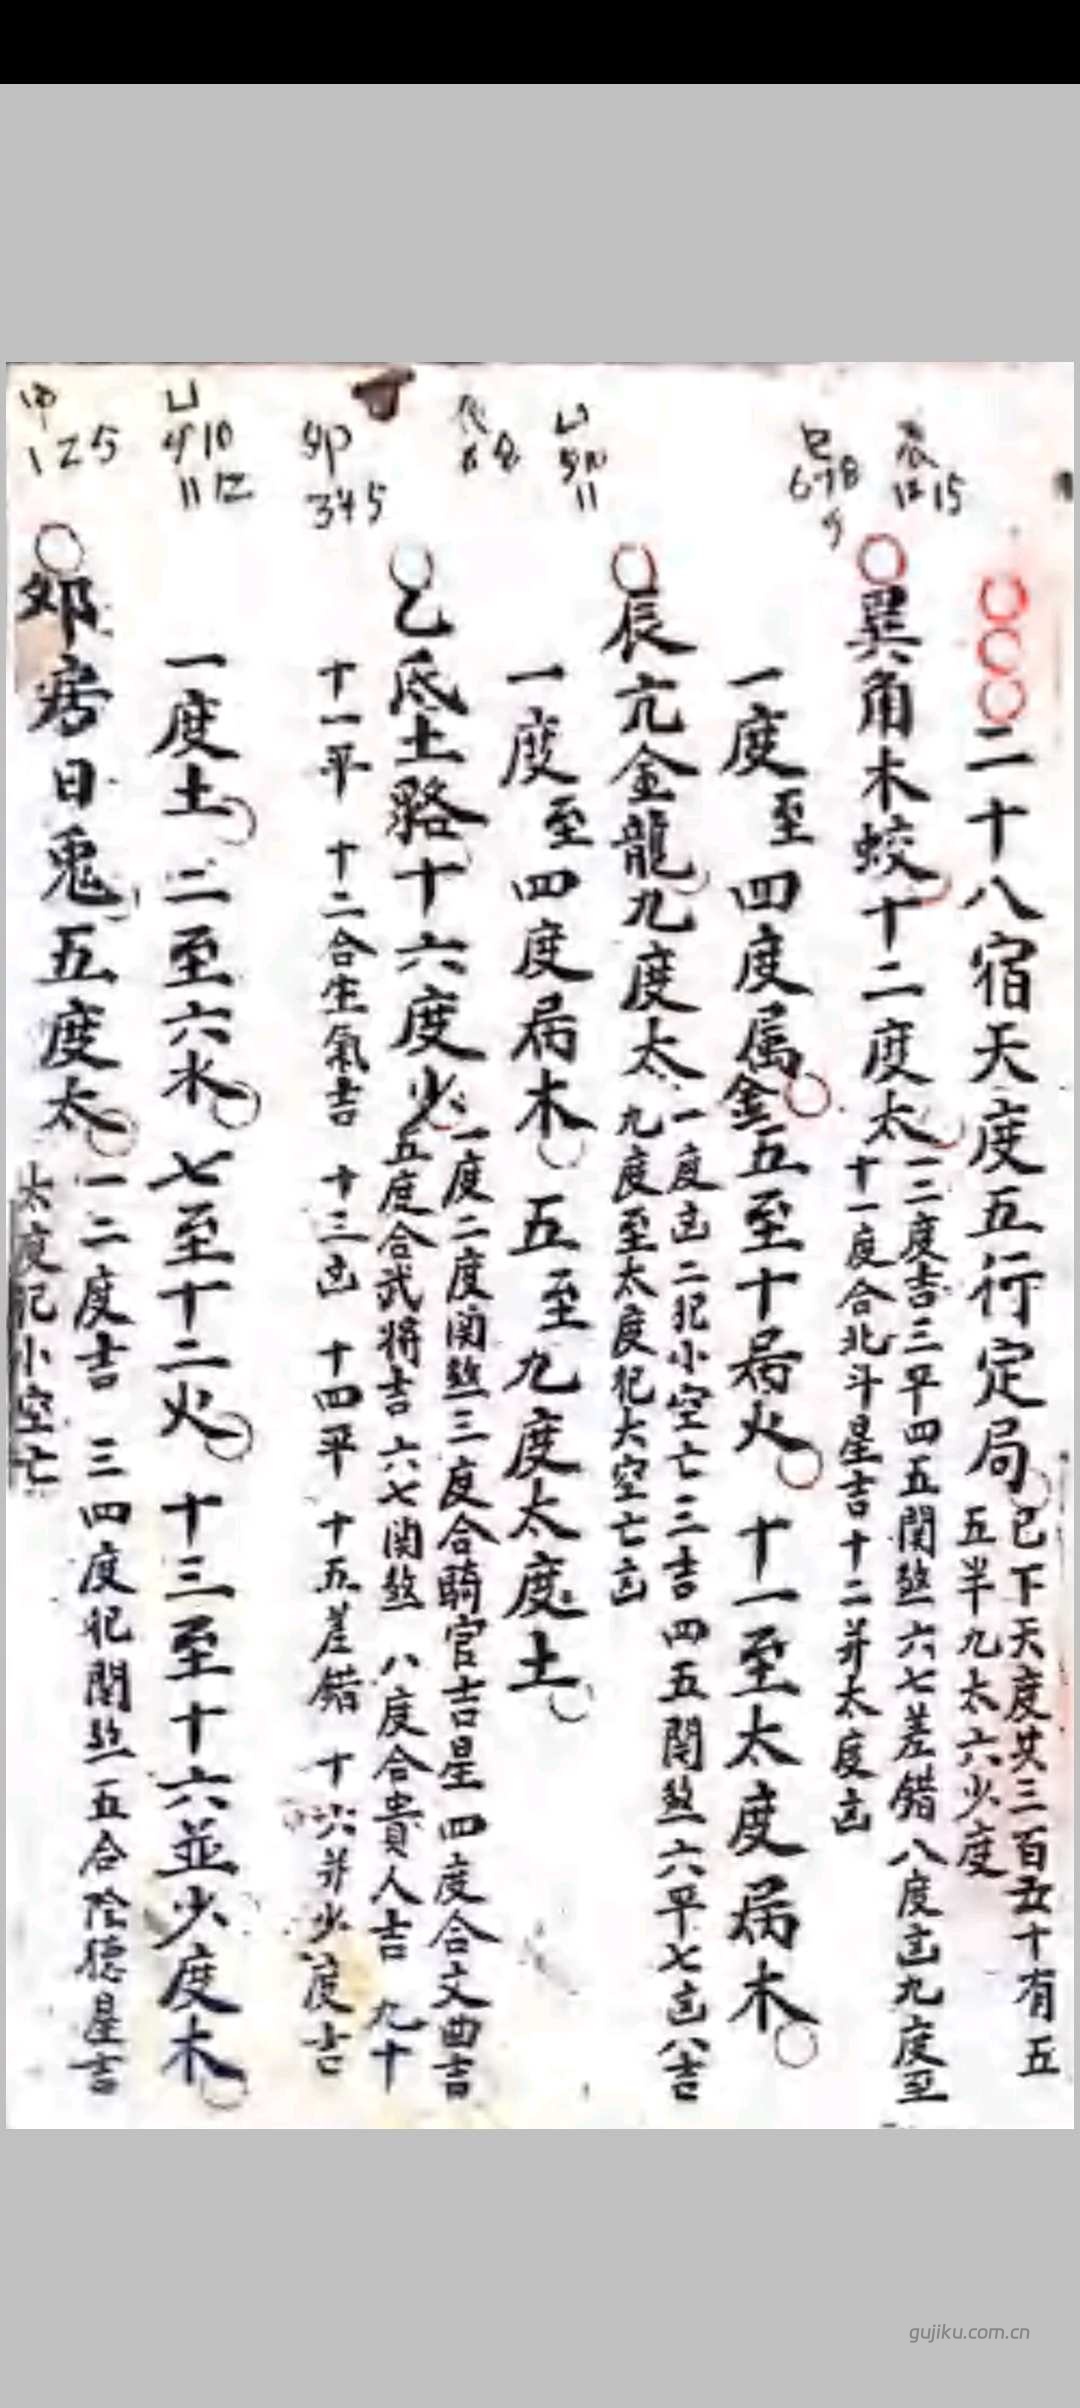 巳 辰
6 7 8 12 15
9
山
9 10
11
卯
3 4 5
山
9 10
11 12
1 2 5
○○○二十八宿天度五行定局
已下天度共三百五十有五
五半九太六少度
○巽角木蛟十二度太
一二度吉三平四五関煞六七差錯八度凶九度至
十一度合北斗星吉十二并太度凶
一度至四度属金五至十局火 十一至太度局木
○辰亢金龍九度太
一度凶二犯小空亡三吉四五関煞六平七凶八吉
九度至太度犯大空亡凶
一度至四度局木 五至九度太度土
○乙氐土貉十六度少
一度二度関煞三度合騎官吉星四度合文曲吉
五度合武將吉 六七関煞 八度合貴人吉 九十
十一平 十二合生氣吉 十三凶 十四平 十五差錯 十六并少度吉
一度土 二至六水 七至十二火 十三至十六並少度木
○房日兎五度太
一二度吉 三四度犯関煞五合陰德星吉
太度犯小空亡
gujiku.com.cn